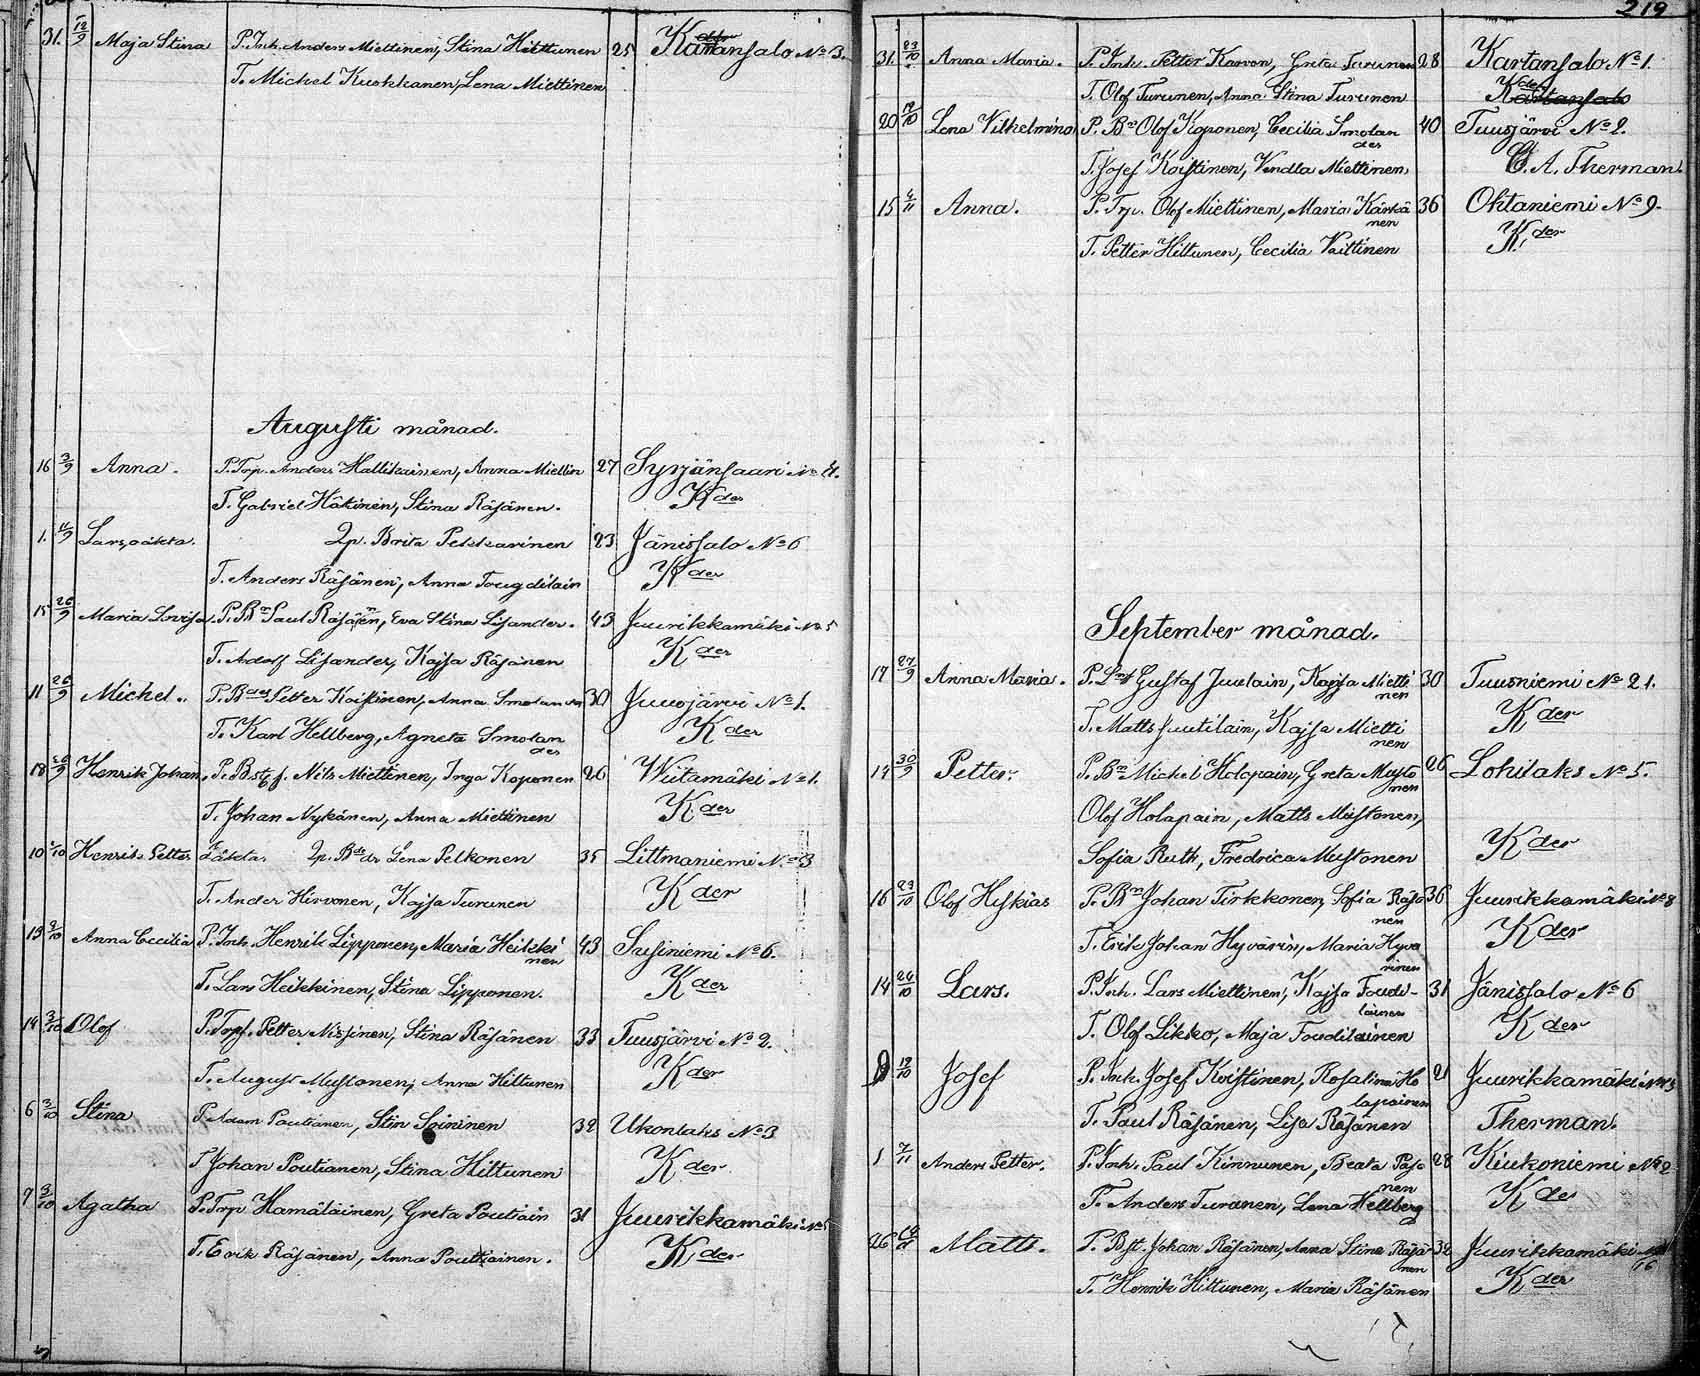 31. 12/9 Maja Stina P. Inh. Anders Miettinen, Stina Hilttunen 25 Kartansalo No 3.
T. Michel Kuohkanen, Lena Miettinen
Augusti månad.
16 3/9 Anna. P. Trp. Anders Hallikainen, Anna Miettin 27 Syrjänsaari No 4.
T. Gabriel Häkinen, Stina Räsänen. Kder
1. 11/9 Lars, oäkta. Qp. Brita Pekkarinen 23 Jänissalo No 6
T. Anders Räsänen, Anna Tougdilain Kder
15 26/9 Maria Lovisa. P. Bn Paul Räsänen, Eva Stina Lisander. 43 Juurikkamäki No 5
T. Adolf Lisander, Kajsa Räsänen Kder
11 26/9 Michel. P. Bdes Petter Koistinen, Anna Smolan 30 Juusjärvi No 1.
T. Karl Hellberg, Agneta Smolander Kder
18 26/9 Henrik Johan, P. Bstf. Nils Miettinen, Inga Koponen 26 Wiitamäki No 1.
T. Johan Nykänen, Anna Miettinen Kder
10 1/10 Henrik Petter oäkta. Qp. Bdr Lena Pelkonen 35 Littmaniemi No 3
T. Ander Hirvonen, Kajsa Turunen Kder
13 2/10 Anna Cecilia P. Inh. Henrik Lipponen, Maria Heikkinen 43 Susiniemi No 6.
T. Lars Heikkinen, Stina Lipponen. Kder
14 3/10 Olof P. Trpf. Petter Nissinen, Stina Räsänen 33 Tuusjärvi No 2.
T. August Mustonen, Anna Hiltunen Kder
6 3/10 Stina P. Adam Poutianen, Stin Soininen 32 Ukonlaks No 3
T Johan Poutianen, Stina Hiltunen Kder
7 3/10 Agatha P. Trp Hämäläinen, Greta Poutiain 31 Juurikkamäki No 5
T. Erik Räsänen, Anna Poutiainen. Kder
219
31. 23/10 Anna Maria. P. Inh. Petter Karvon, Greta Turunen 28 Kartansalo No 1.
T. Olof Turunen, Anna Stina Turunen Kder
20 19/10 Lena Vilhelmina P. Bn Olof Koponen, Cecilia Smolander 40 Tuusjärvi No 2.
T. Josef Koistinen, Vendla Miettinen C. A. Therman.
15 4/11 Anna. P. Trp. Olof Miettinen, Maria Kärkänen 36 Ohtaniemi No 9.
T. Petter Hiltunen, Cecilia Vaittinen Kder
September månad.
17 27/9 Anna Maria. P. Gustaf Juutlain, Kajsa Miettinen 30 Tuusniemi No 21.
T. Matts Juutilain, Kajsa Miettinen Kder
14 30/9 Petter. P. Bn Michel Holopain, Greta Mustonen 26 Lohilaks No 5.
Olof Holapain, Matts Mustonen,
Sofia Ruth, Fredrica Mustonen Kder
16 23/10 Olof Hiskias P. Bn Johan Tirkkonen, Sofia Räsänen 36 Juurikkamäki No 8
T. Erik Johan Hyvärin, Maria Hyvärinen Kder
14 24/10 Lars. P. Inh. Lars Miettinen, Kajsa Toudilainen 31 Jänissalo No 6
T. Olof Likko, Maja Toudilainen Kder
19/10 Josef P. Inh. Josef Koistinen, Rosalina Holapainen 21 Juurikkamäki
T. Paul Räsänen, Lisa Räsänen Therman.
1 7/11 Anders Petter. P. Inh. Paul Kinnunen, Beata Pasanen 28 Kiukoniemi No 2
T. Anders Turunen, Lena Hellberg Kder
26 Matts. P. Bst. Johan Räsänen, Anna Stina Räsänen 32 Juurikkamäki 16
T. Henrik Hiltunen, Maria Räsänen Kder